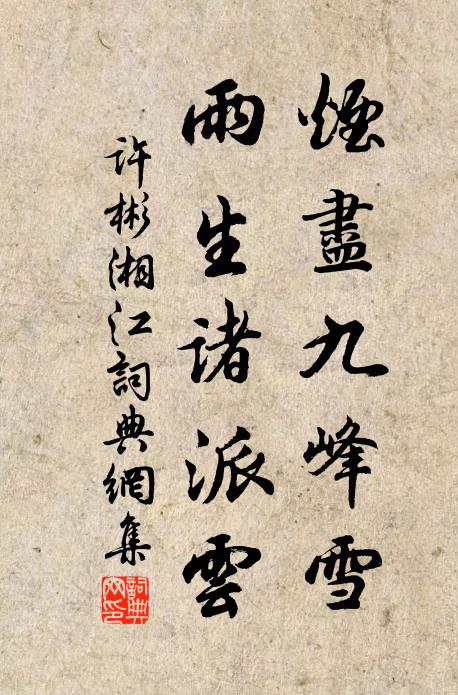 煙盡九峰雪
雨生諸派雲
許彬湘江詞典網集
詞典網印